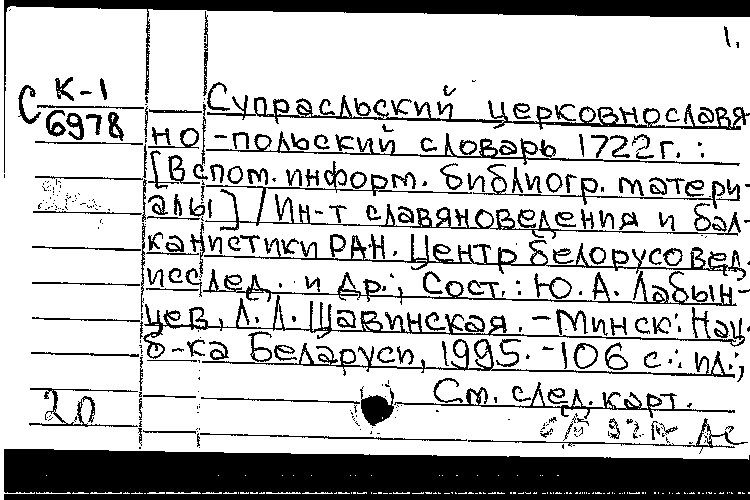 1.
С К-1
6978
Супрасльский церковнославя
но-польский словарь 1722г. :
[Вспом. информ. библиогр. матери-
алы] / Ин-т славяноведения и бал-
канистики РАН. Центр белорусовед.
исслед. и др.; Сост.: Ю. А. Лабын-
цев, Л. Л. Щавинская. - Минск: Нац.
б-ка Беларуси, 1995. - 106 с.: ил.;
См. след. карт.
20